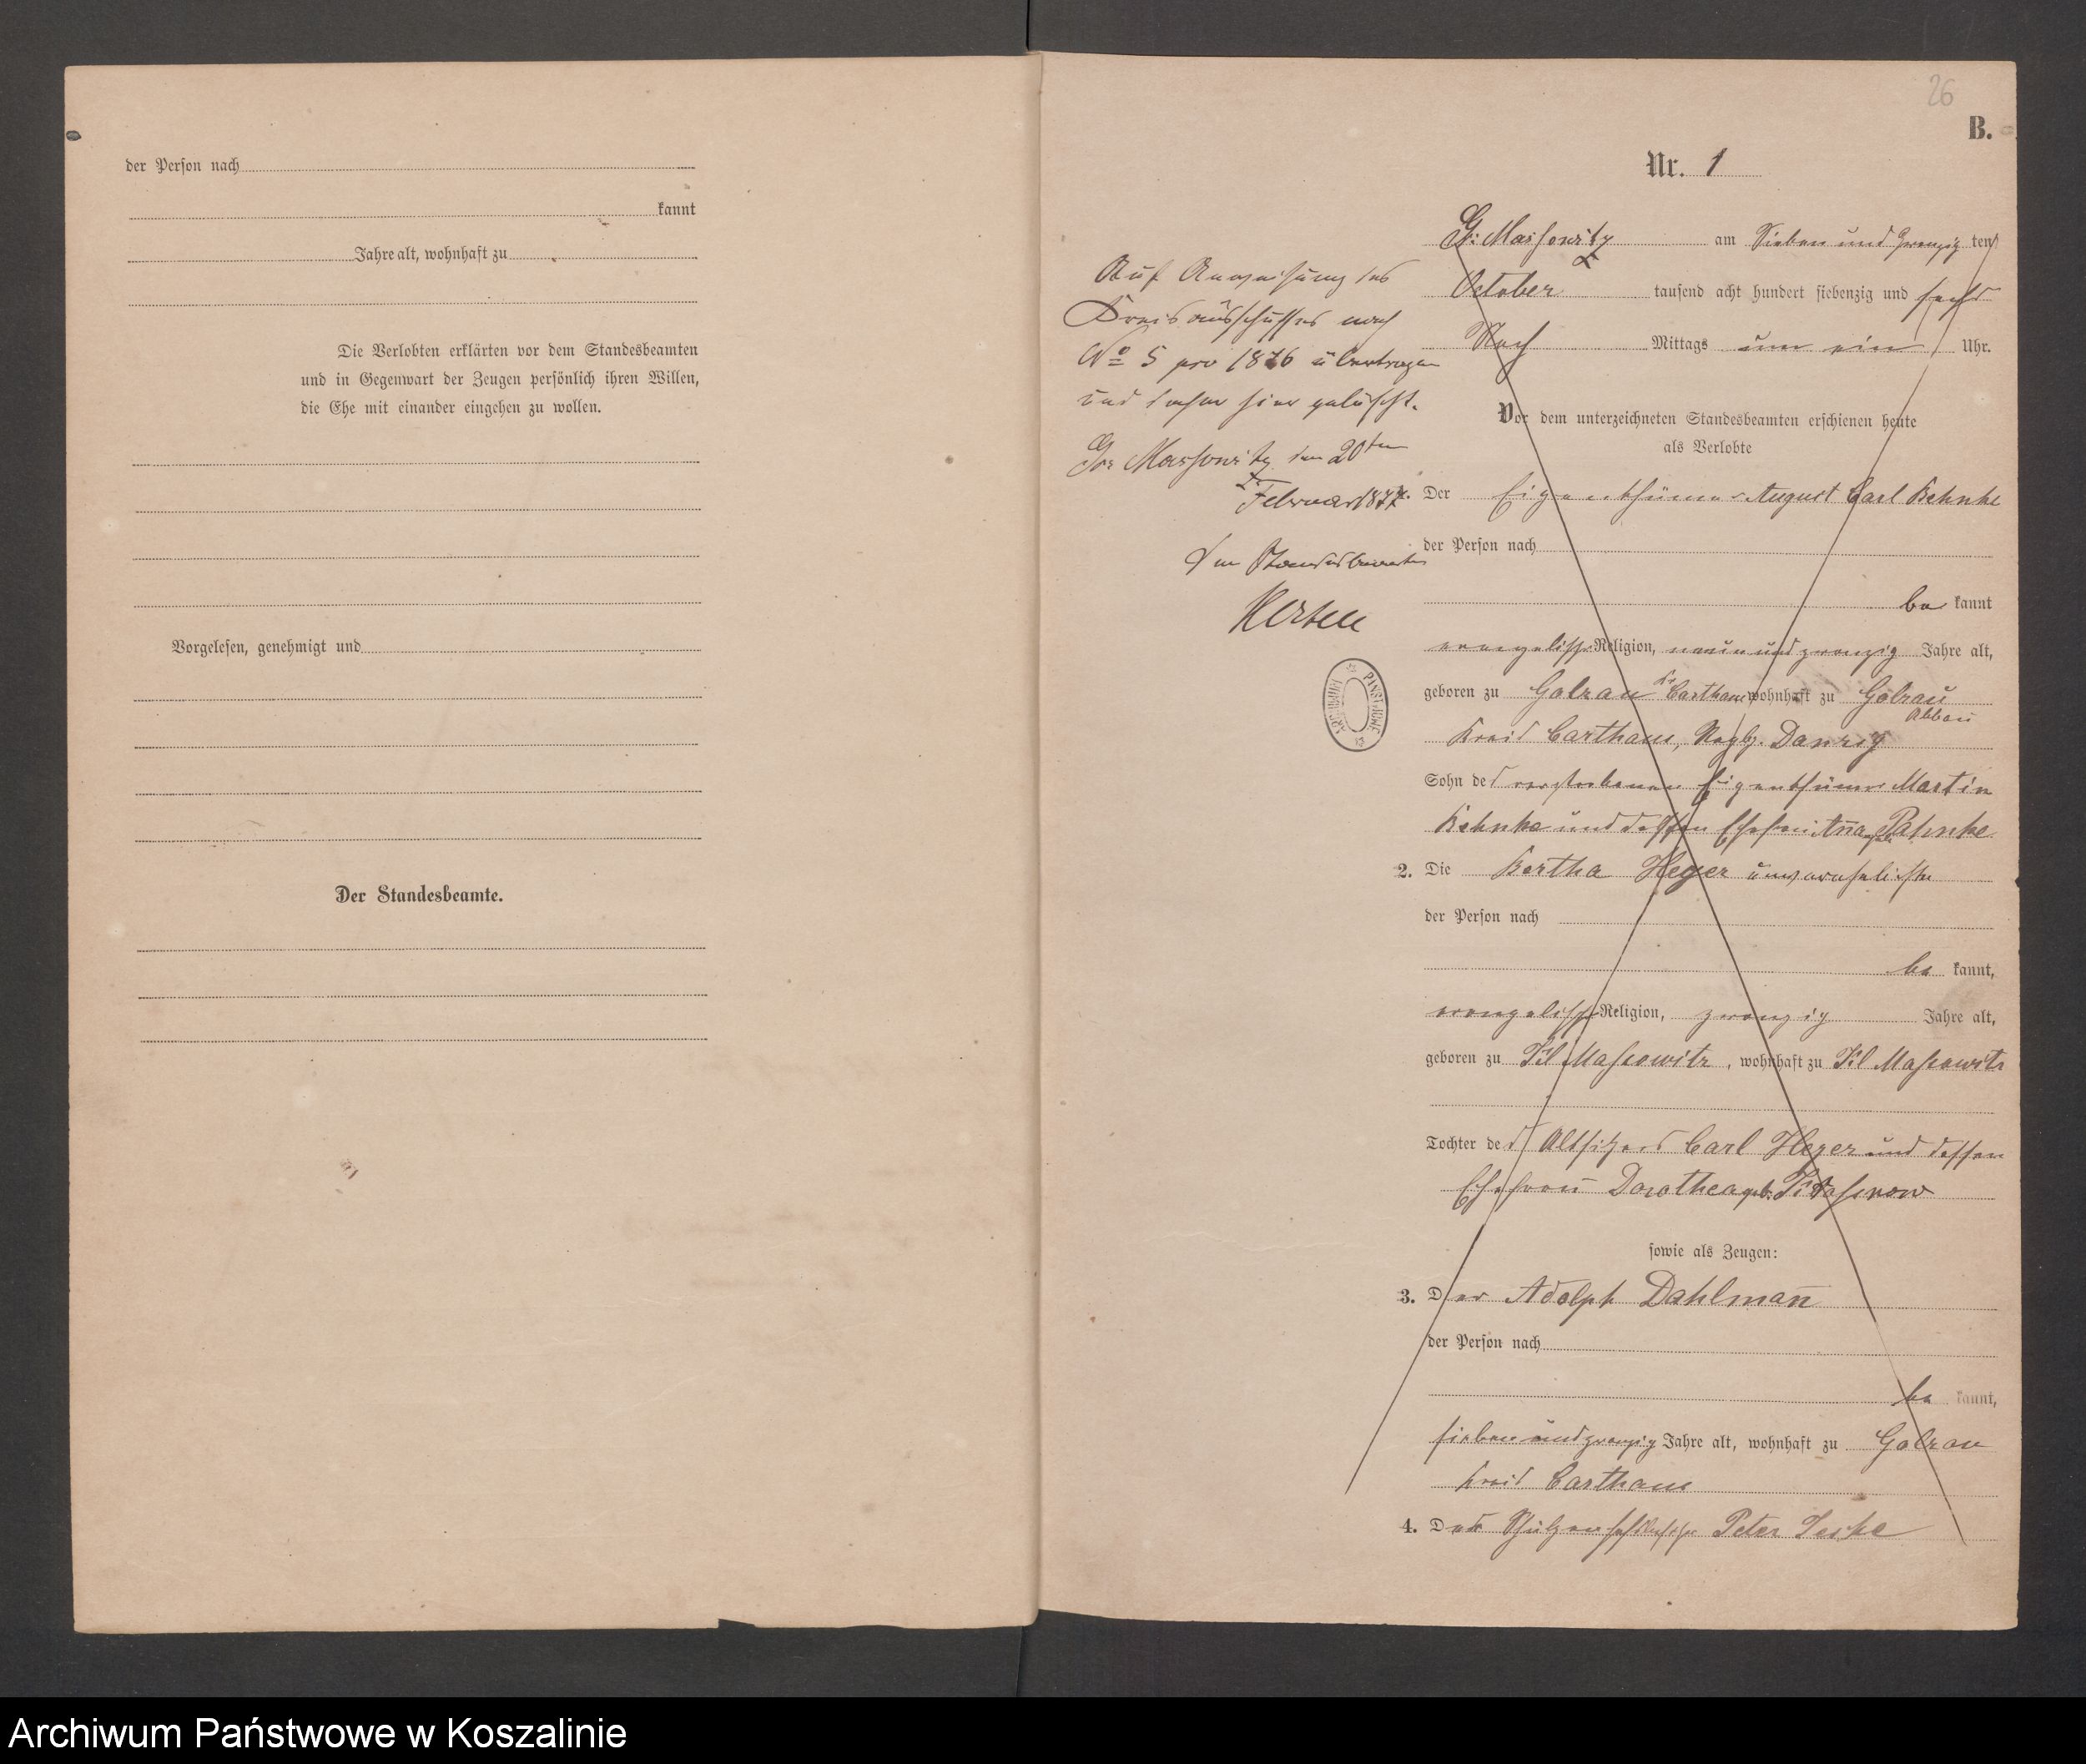 der Person nach
kannt
Jahre alt, wohnhaft zu
Die Verlobten erklärten vor dem Standesbeamten
und in Gegenwart der Zeugen persönlich ihren Willen,
die Ehe mit einander eingehen zu wollen.
Vorgelesen, genehmigt und
Der Standesbeamte.
26
B.
Nr. 1
Gr. Massowitz am Sieben und zwanzig ten
October tausend acht hundert siebenzig und sechs
Nach Mittags um ein Uhr.
Auf Anweisung des
Kreisausschusses nach
No 5 pro 1876 übertragen
und daher hier gelöscht.
Gr Massowitz den 20ten
Februar 1877.
Der Standesbeamte
Vor dem unterzeichneten Standesbeamten erschienen heute
als Verlobte
1. Der Eigenthümer August Carl Behnke
der Person nach
be kannt
evangelischer Religion, neun und zwanzig Jahre alt,
geboren zu Golzau Kr. Carthaus wohnhaft zu Golzau
Abbau
Kreis Carthaus, Regbz. Danzig
Sohn des verstorbenen Eigenthümer Martin
Behnke und dessen Ehefrau Anna geb. Pahnke
2. Die Bertha Heyer unverehelichte
der Person nach
be kannt,
evangelischer Religion, zwanzig Jahre alt,
geboren zu Kl Massowitz, wohnhaft zu Kl Massowitz
Tochter des Altsitzers Carl Heyer und dessen
Ehefrau Dorothea geb.
sowie als Zeugen:
3. Der Adolph Dahlmann
der Person nach
be kannt,
sieben und zwanzig Jahre alt, wohnhaft zu Golzau
Kreis Carthaus
4. Der Peter
Archiwum Państwowe w Koszalinie